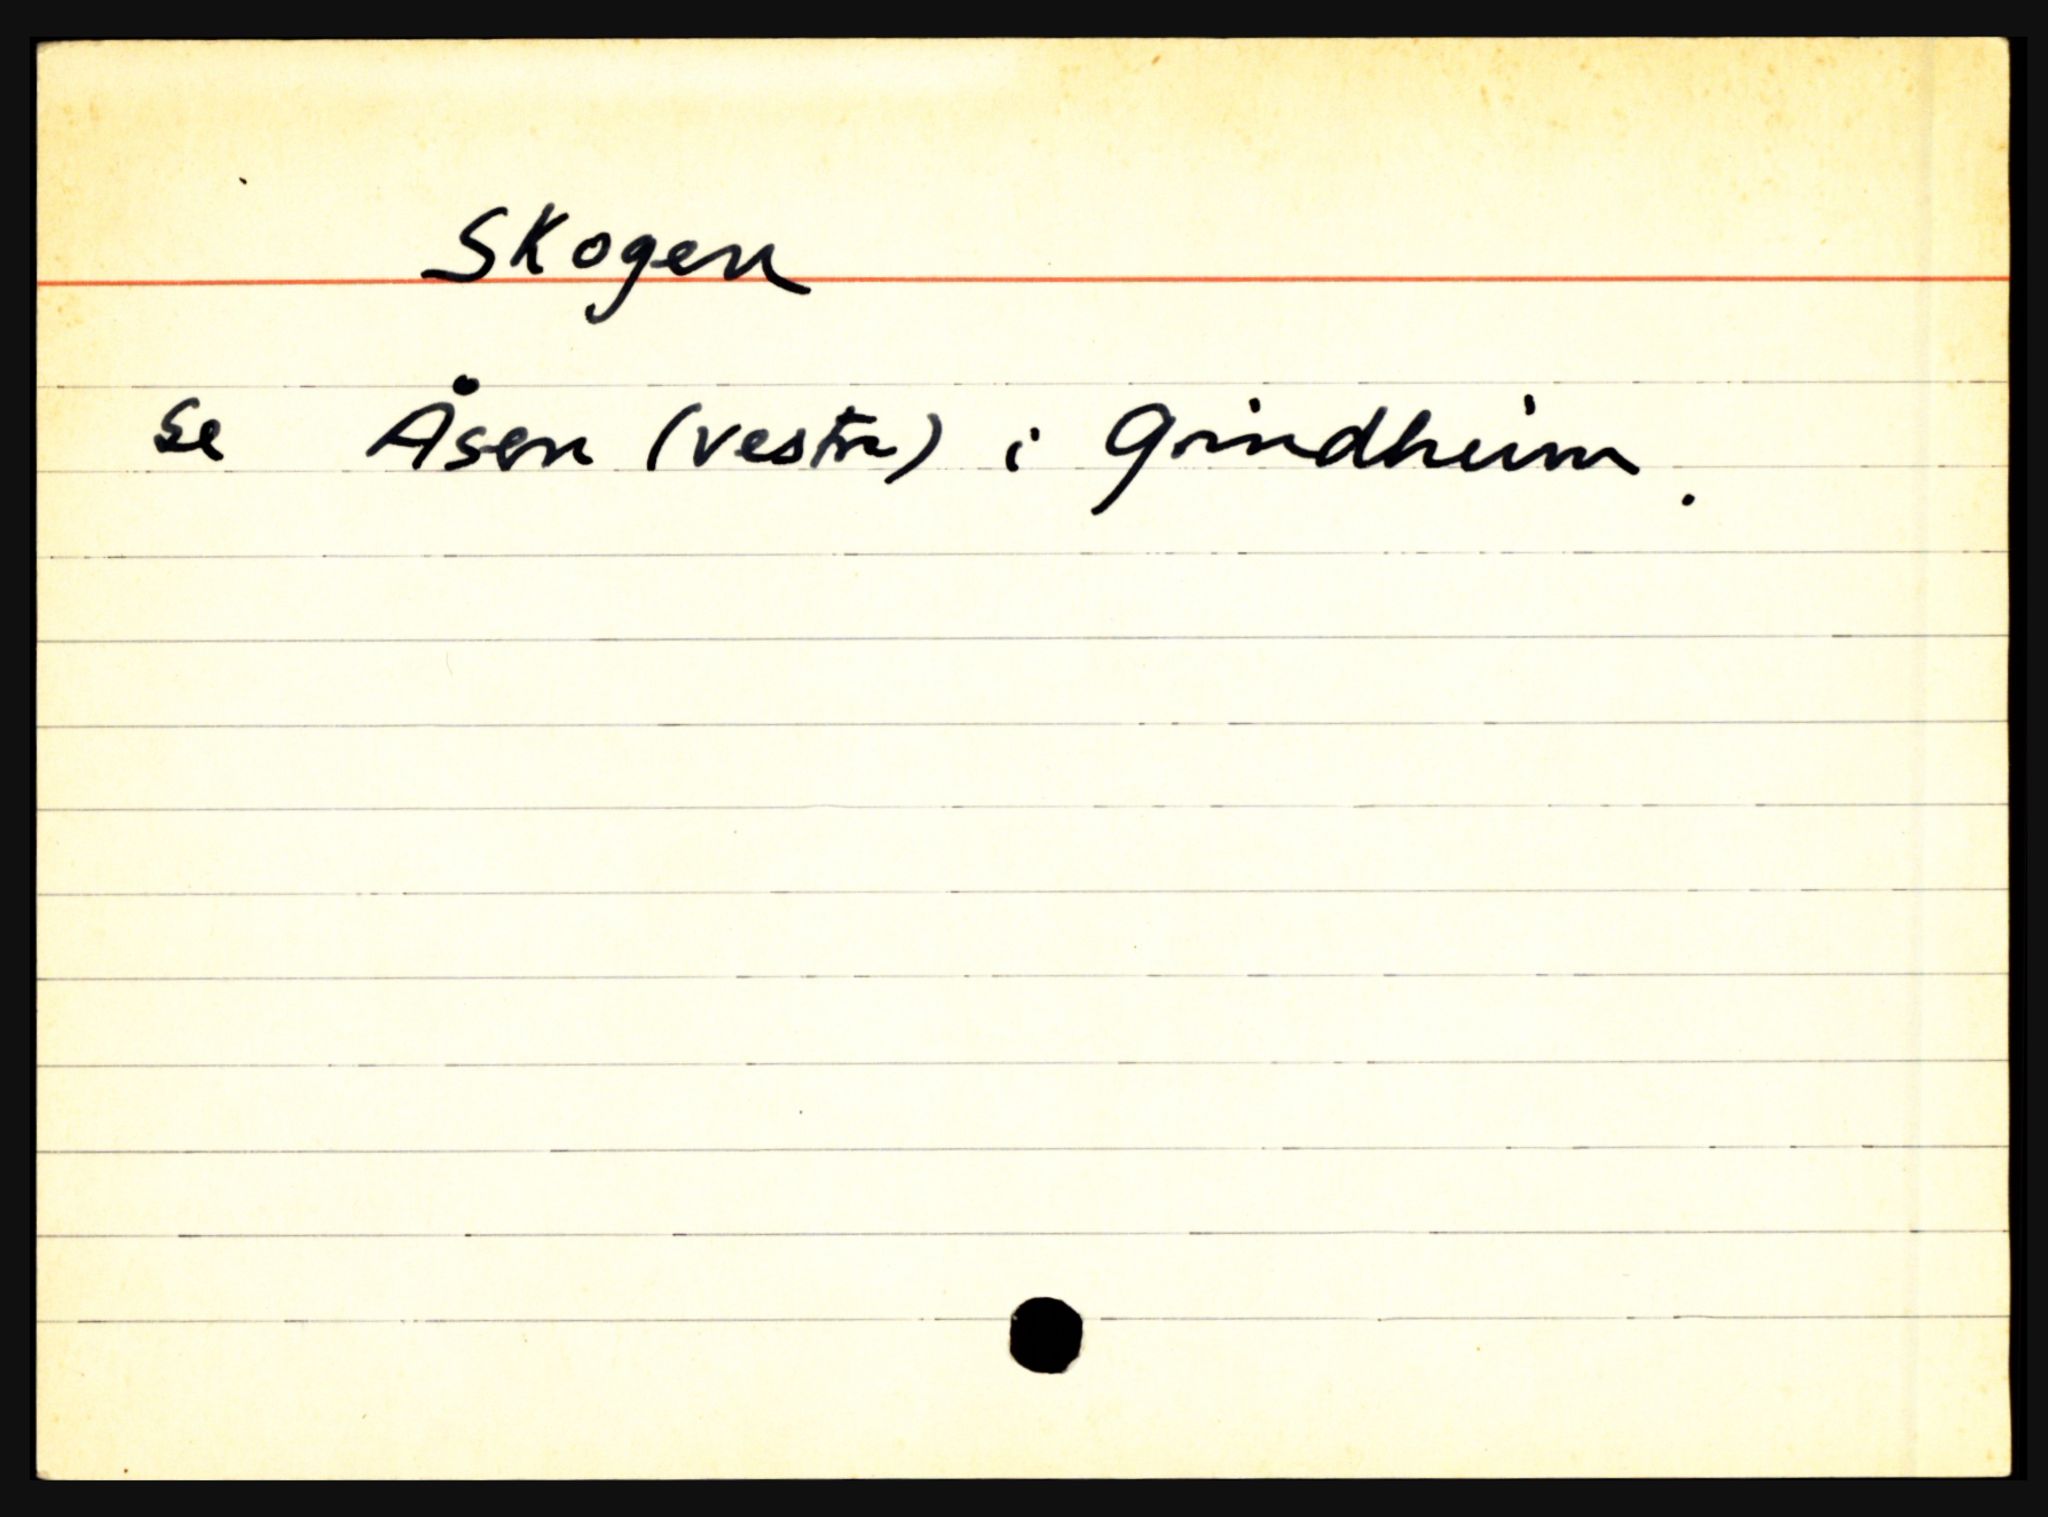 Skogen
se Åsen (vestre) i Grindheim.